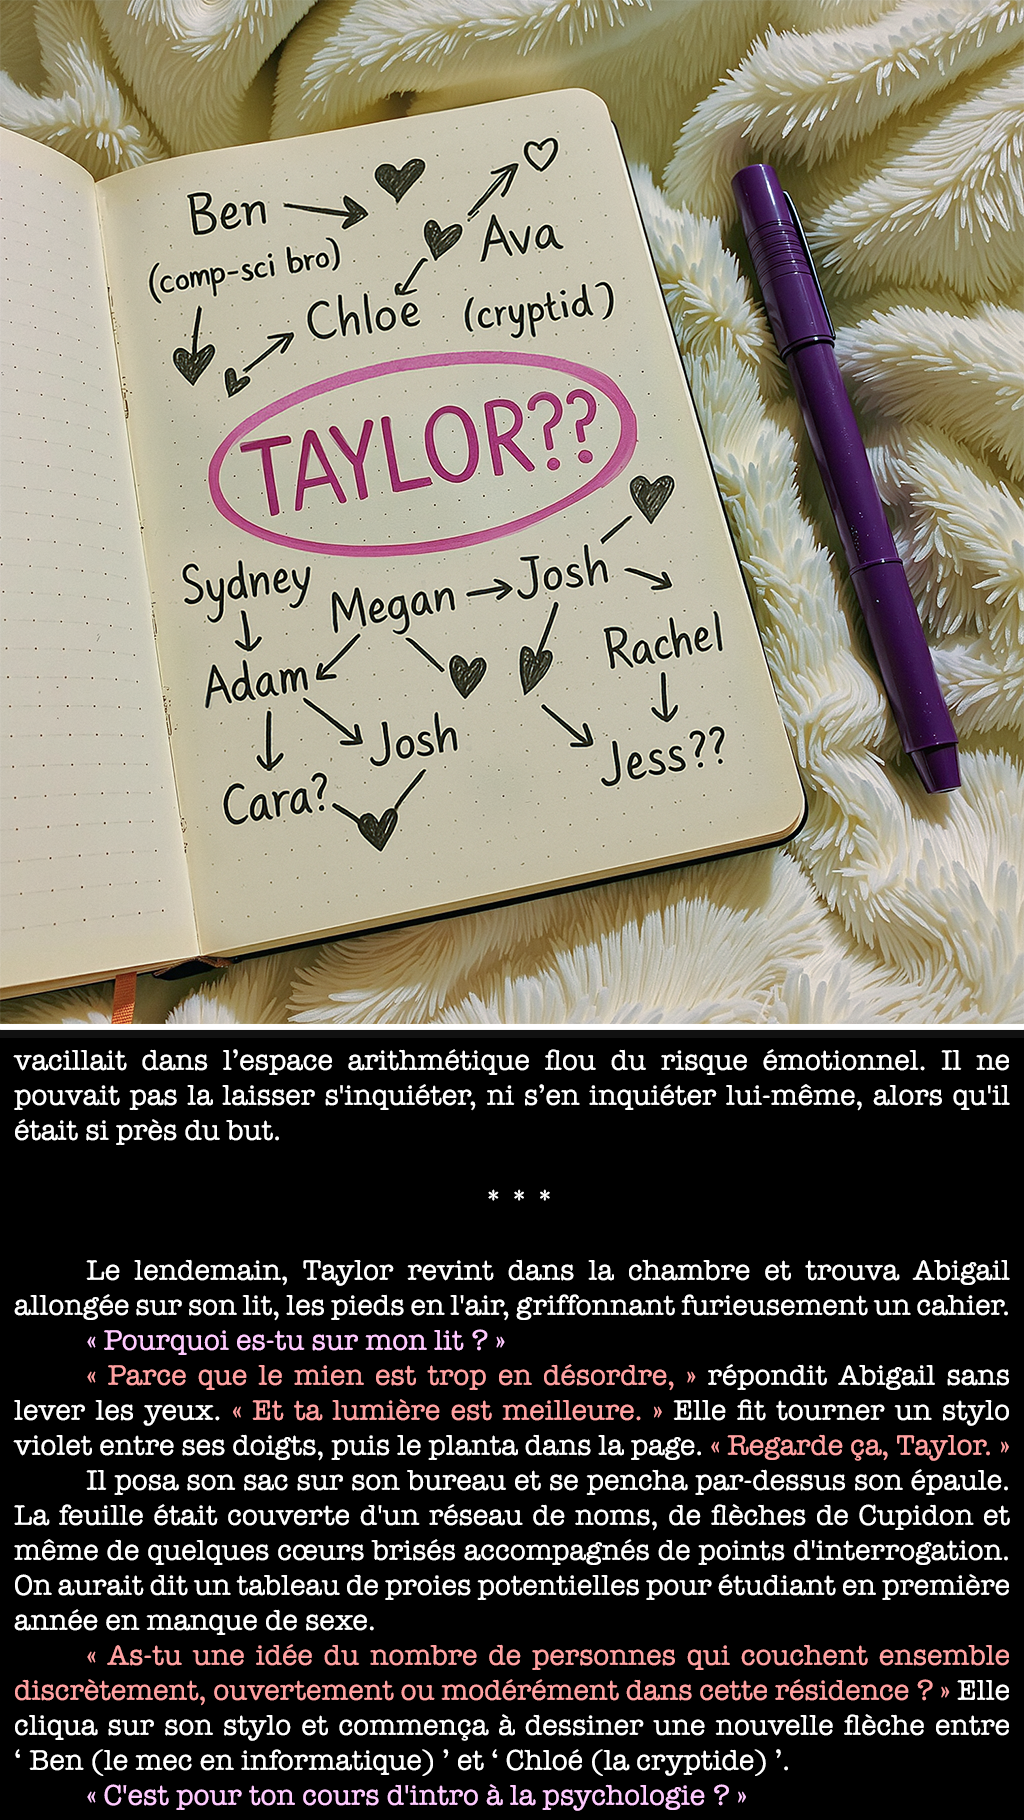 Ben
(comp-sci bro)
Ava
Chloe
(cryptid)
TAYLOR??
Sydney
Megan
Josh
Adam
Rachel
Josh
Jess??
Cara?
vacillait dans l’espace arithmétique flou du risque émotionnel. Il ne
pouvait pas la laisser s'inquiéter, ni s’en inquiéter lui-même, alors qu'il
était si près du but.
* * *
Le lendemain, Taylor revint dans la chambre et trouva Abigail
allongée sur son lit, les pieds en l'air, griffonnant furieusement un cahier.
« Pourquoi es-tu sur mon lit ? »
« Parce que le mien est trop en désordre, » répondit Abigail sans
lever les yeux. « Et ta lumière est meilleure. » Elle fit tourner un stylo
violet entre ses doigts, puis le planta dans la page. « Regarde ça, Taylor. »
Il posa son sac sur son bureau et se pencha par-dessus son épaule.
La feuille était couverte d'un réseau de noms, de flèches de Cupidon et
même de quelques cœurs brisés accompagnés de points d'interrogation.
On aurait dit un tableau de proies potentielles pour étudiant en première
année en manque de sexe.
« As-tu une idée du nombre de personnes qui couchent ensemble
discrètement, ouvertement ou modérément dans cette résidence ? » Elle
cliqua sur son stylo et commença à dessiner une nouvelle flèche entre
‘ Ben (le mec en informatique) ’ et ‘ Chloé (la cryptide) ’.
« C'est pour ton cours d'intro à la psychologie ? »